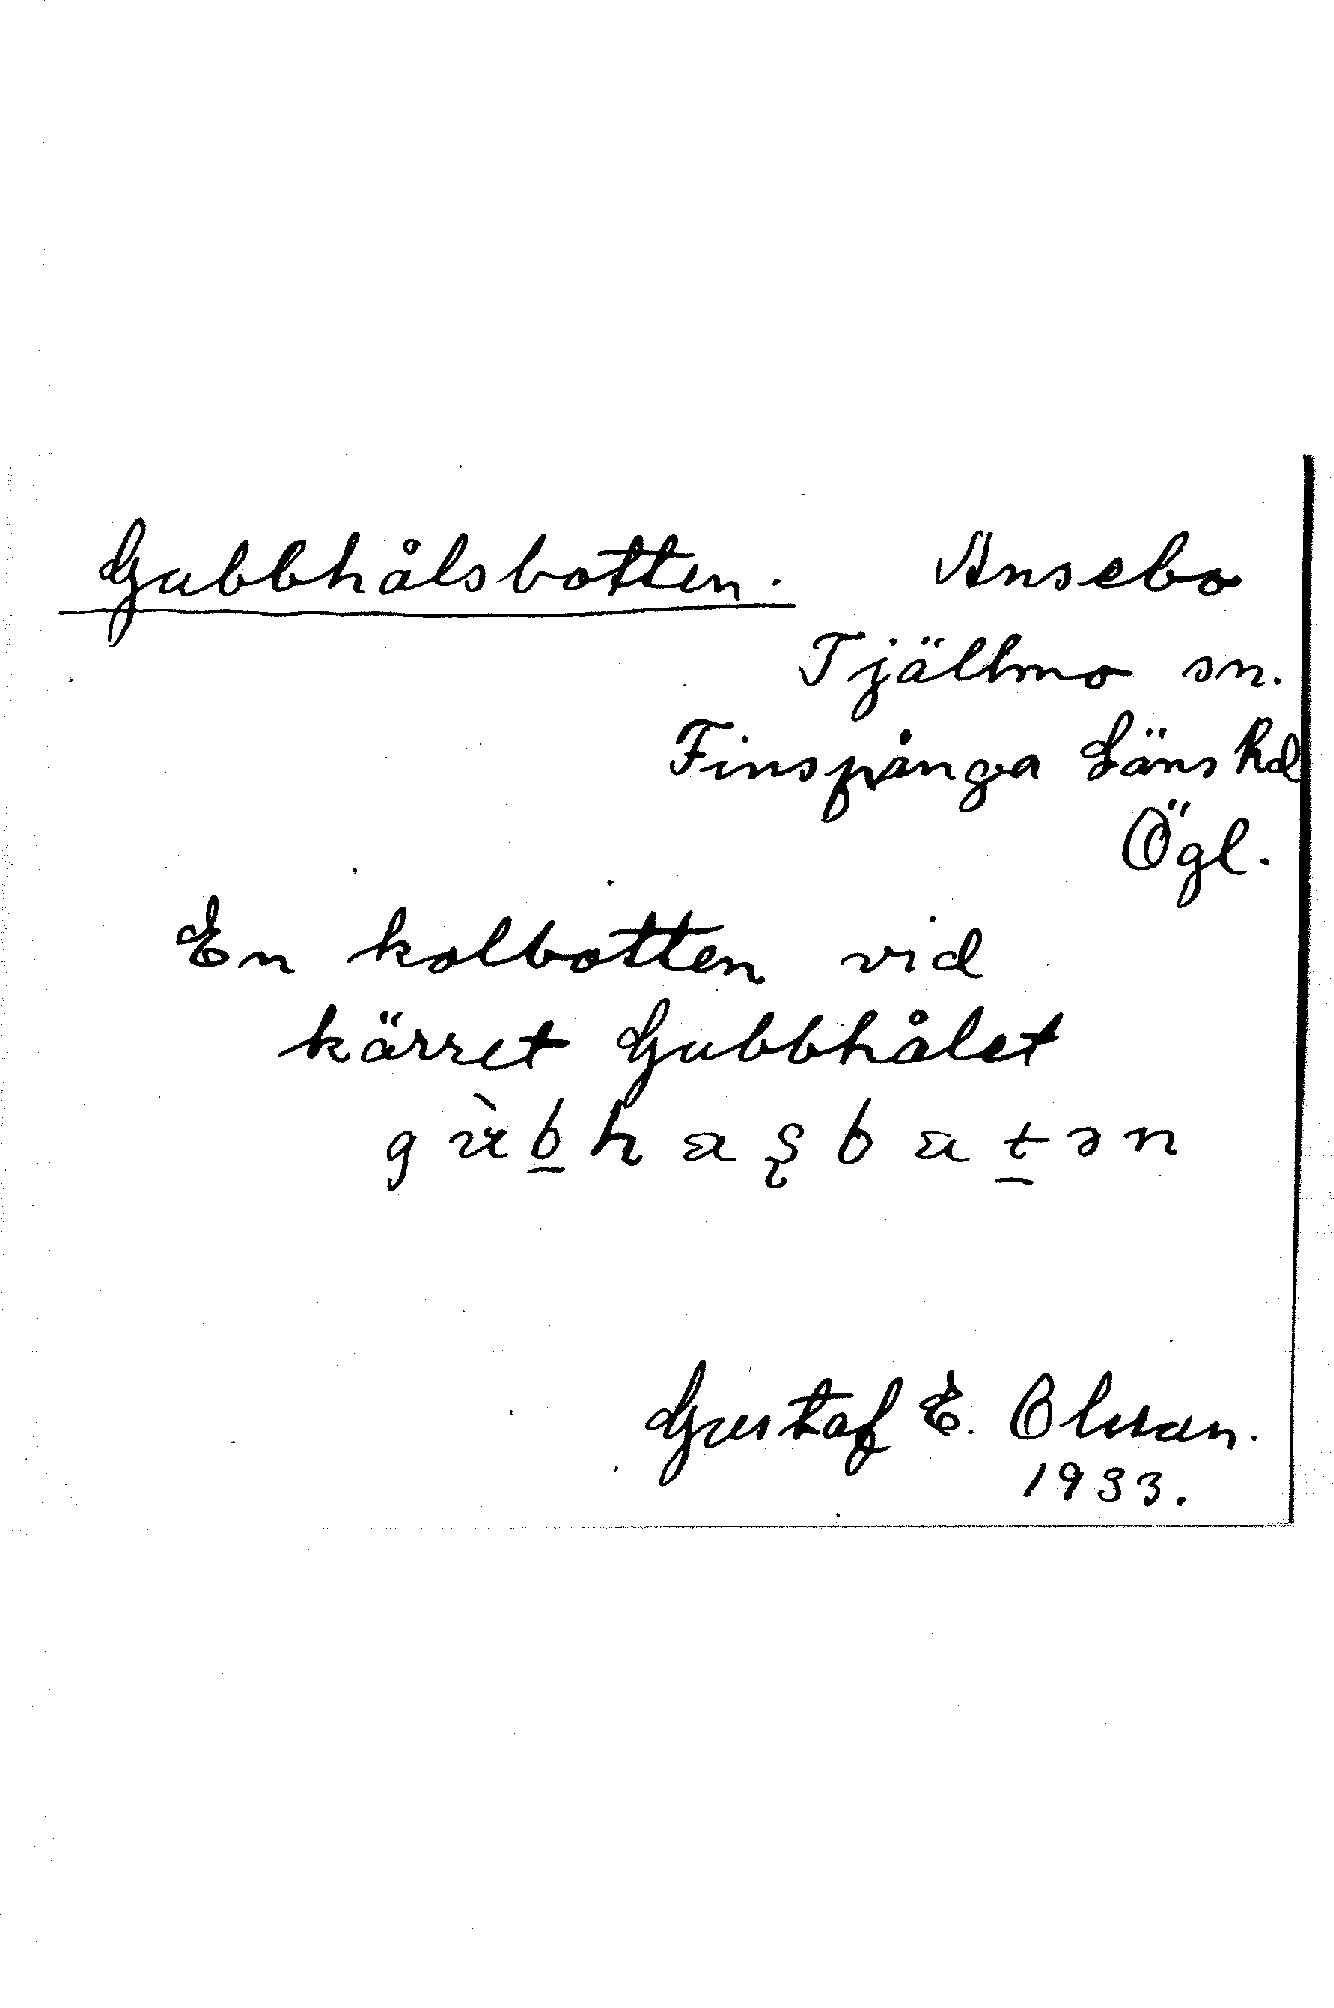 Gubbhålsbotten. Ansebo
Tjällmo sn.
Finspånga Läns hd
Ögl.
En kolbotten vid
kärret Gubbhålet
Gustaf E. Olsson.
1933.